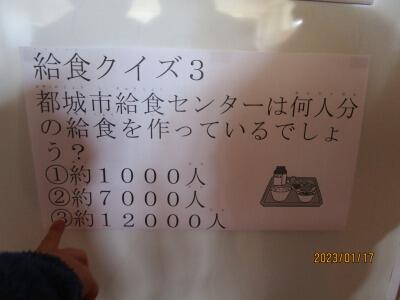 給食クイズ３
都城市給食センターは何人分
の給食を作っているでしょ
う？
①約１０００人
②約７０００人
③約１２０００人
2023/01/17